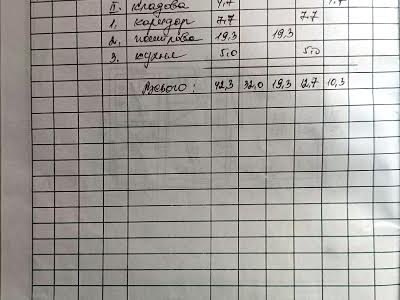 II. кладова 4,7 4,7
1. коридор 7.7 7.7
2. житлова 19,3 19,3
3. кухня 5,0 5,0
Всього: 42,3 32,0 19,3 12,7 10,3